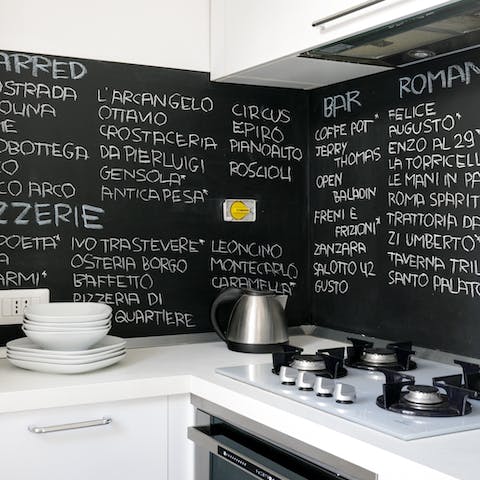 ARRED
OSTRADA
OLINA
ME
ROBOTTEGA
CO
CO ARCO
L'ARCANGELO
OTTAVIO
CROSTACERIA
DA PIERLUIGI
GENSOLA*
ANTICA PESA*
CIRCUS
EPIRO
PIANOALTO
ROSCIOLI
ZZERIE
POETA*
A
ARMI*
IVO TRASTEVERE*
OSTERIA BORGO
BAFFETTO
PIZZERIA DI
QUARTIERE
LEONCINO
MONTECARLO
CARAMELLA*
BAR
COFFE POT*
JERRY
THOMAS
OPEN
BALADIN
FRENI E
FRIZIONI*
ZANZARA
SALOTTO 42
GUSTO
ROMAN
FELICE
AUGUSTO*
ENZO AL 29*
LA TORRICELL
LE MANI IN PA
ROMA SPARIT
TRATTORIA DA
ZI UMBERTO*
TAVERNA TRIL
SANTO PALATO